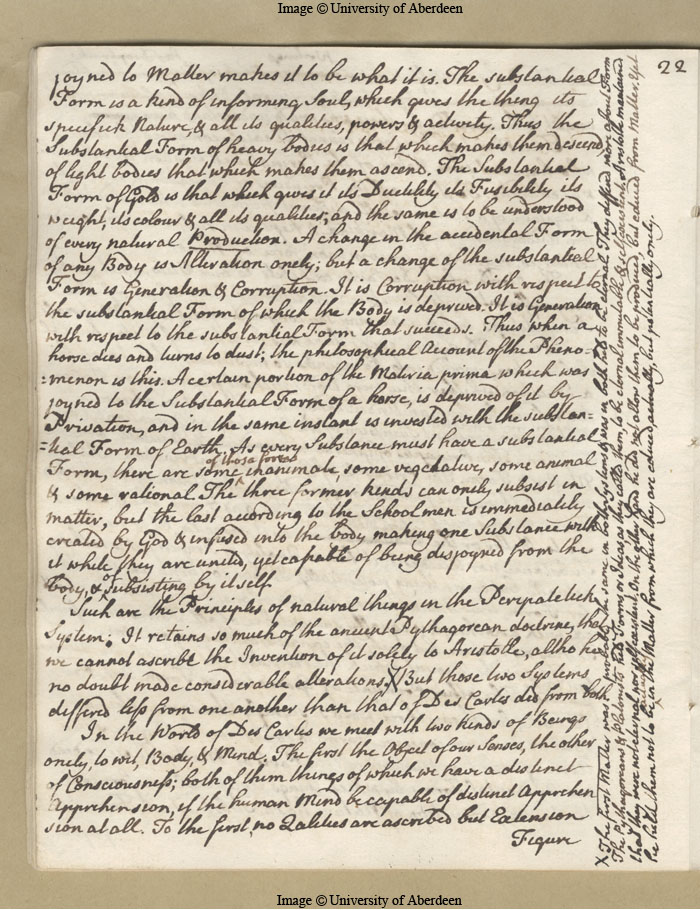 Image © University of Aberdeen
22
joyned to Matter makes it to be what it is. The substantial
Form is a kind of informing Soul, which gives the thing its
specifick Nature, & all its qualities, powers & activity. Thus the
Substantial Form of heavy bodies is that which makes them descend,
of light bodies that which makes them ascend. The Substantial
Form of Gold is that which gives it its Ductility its Fusibility its
weight, its colour & all its qualities; and the same is to be understood
of every natural Production. A change in the accidental Form
of any Body is Alteration onely; but a change of the substantial
Form is Generation & Corruption. It is Corruption with respect to
the substantial Form of which the Body is deprived. It is Generation
with respect to the substantial Form that succeeds. Thus when a
horse dies and turns to dust; the philosophical Account of the Pheno=
=menon is this. A certain portion of the Materia prima which was
joyned to the Substantial Form of a horse, is deprived of it by
Privation, and in the same instant is invested with the substan=
=tial Form of Earth. As every Substance must have a substantial
of those forms
Form, there are some inanimate, some vegetative, some animal
& some rational. The three former kinds can onely subsist in
matter, but the last according to the Schoolmen is immediately
created by God & infused into the body making one Substance with
it while they are united, yet capable of being disjoyned from the
body, & of subsisting by itself
Such are the Principles of natural things in the Peripatetick
System. It retains so much of the ancient Pythagorean doctrine, that
we cannot ascribe the Invention of it solely to Aristotle, altho he
no doubt made considerable alterations. X But those two Systems
differed less from one another than that of Des Cartes did from both.
In the World of Des Cartes we meet with two kinds of Beings
onely, to wit, Body, & Mind. The first the Object of our Senses, the other
of Consciousness; both of them things of which we have a distinct
Apprehension, if the human Mind be capable of distinct Apprehen
sion at all. To the first, no Qalities are ascribed but Extension
Figure
X The first Matter was the same in both Systems & was in both held to be eternal. They differed more about Form
The Pythagoreans & Platonists held Forms or Ideas as they called them, to be eternal immutable & selfexistent. Aristotle maintained
that they were not eternal nor selfexistent. On the other hand he did not allow them to be produced, but educed from Matter. Yet
he held them not to be in the Matter from which they are educed actually, but potentially onely.
Image © University of Aberdeen